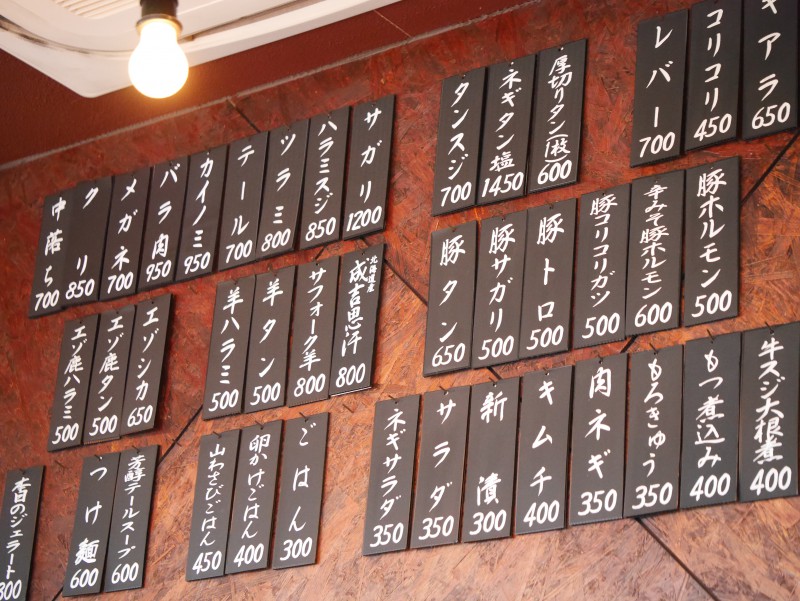 アラ 650
コリコリ 450
レバー 700
厚切りタン(1枚) 600
ネギタン塩 1450
タンスジ 700
サガリ 1200
ハラミスジ 850
ツラミ 800
テール 700
カイノミ 950
バラ肉 950
メガネ 700
クリ 850
中落ち 700
豚ホルモン 500
辛みそ豚ホルモン 600
豚コリコリガツ 500
豚トロ 500
豚サガリ 500
豚タン 650
北海道産 成吉思汗 800
サフォーク羊 800
羊タン 500
羊ハラミ 500
エゾシカ 650
エゾ鹿タン 500
エゾ鹿ハラミ 500
牛スジ大根煮 400
もつ煮込み 400
もろきゅう 350
肉ネギ 350
キムチ 400
新漬 300
サラダ 350
ネギサラダ 350
ごはん 300
卵かけごはん 400
山わさびごはん 450
芳醇テールスープ 600
つけ麺 600
本日のジェラート 300